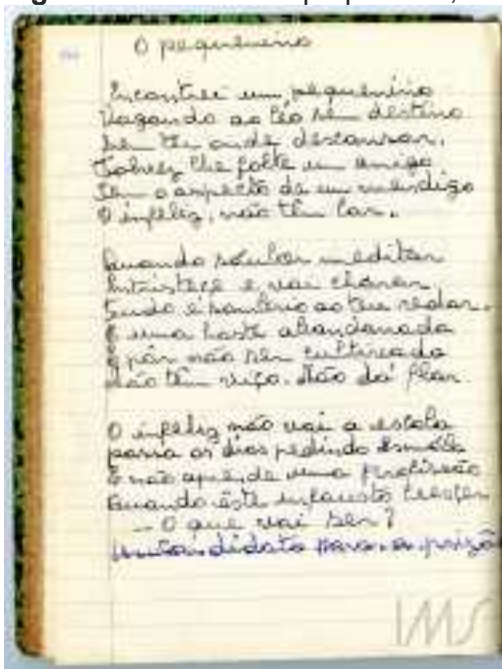 O pequenino
Encontrei um pequenino
Vagando ao léo sem destino
Sem ter onde descansar.
Talvez lhe falte um amigo
Tem o aspecto de um mendigo
O infeliz, não tem lar.
Quando meditar
Entristece e vai chorar
Tudo é ao teu redor.
É uma haste abandonada
E por não ser cultivada
Não tem viço. Não dá flor.
O infeliz não vai a escola
passa os dias pedindo esmóla
E não aprende uma profissão
Quando êste infausto crescer
— O que vai ser?
Um candidato para a prizão
IMS